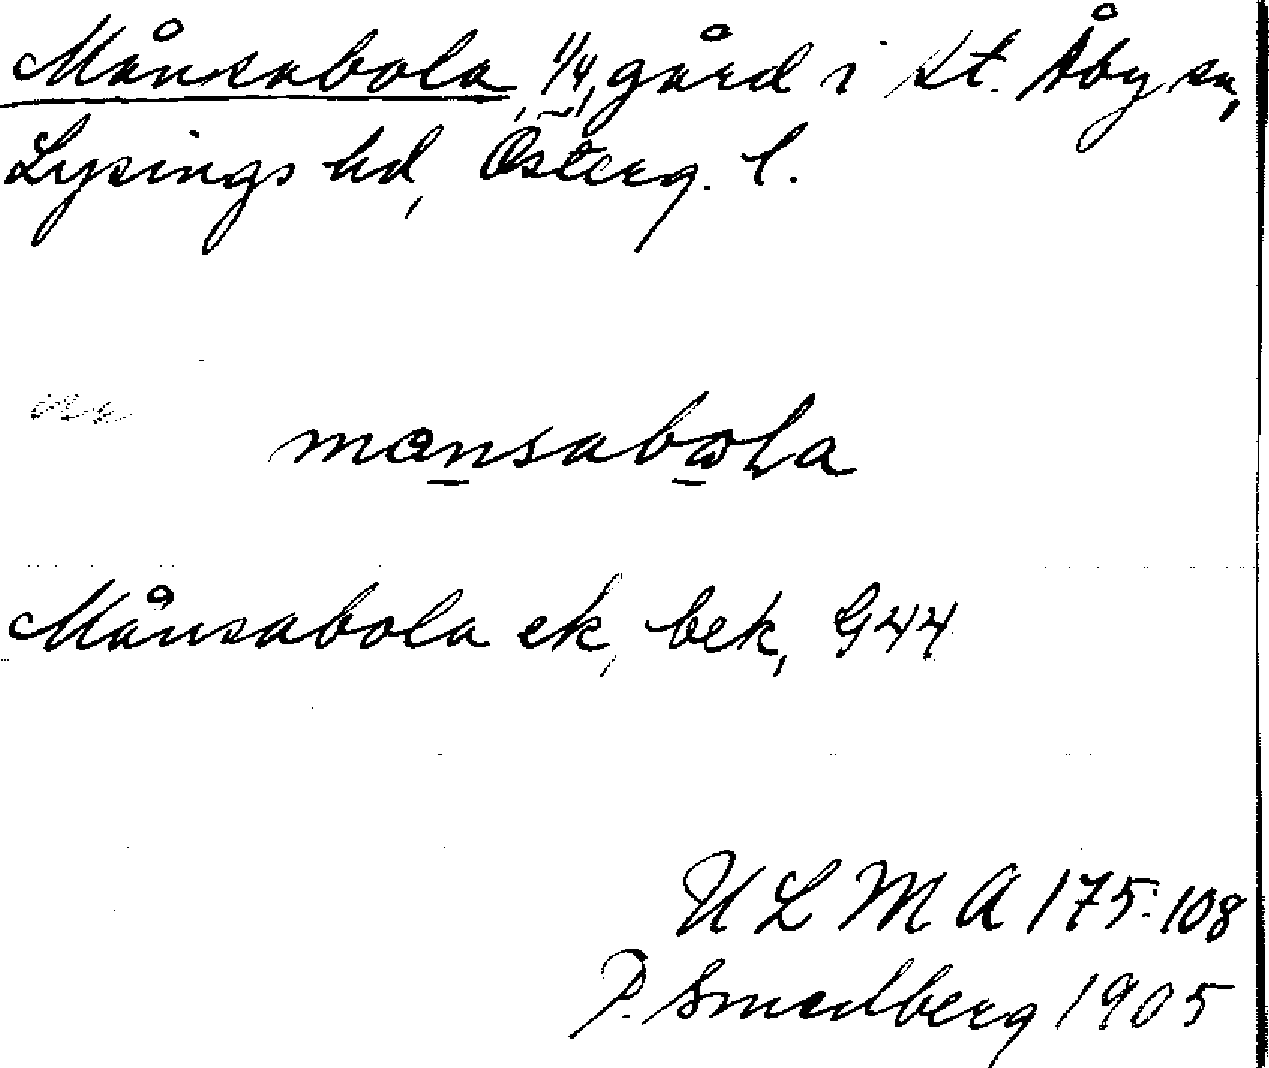 Månsabola, 1/4, gård i St. Åby sn,
Lysings hd, Österg. l.
månsabola
Månsabola ek, bek, G44
ULMA 175:108
P. Smedberg 1905